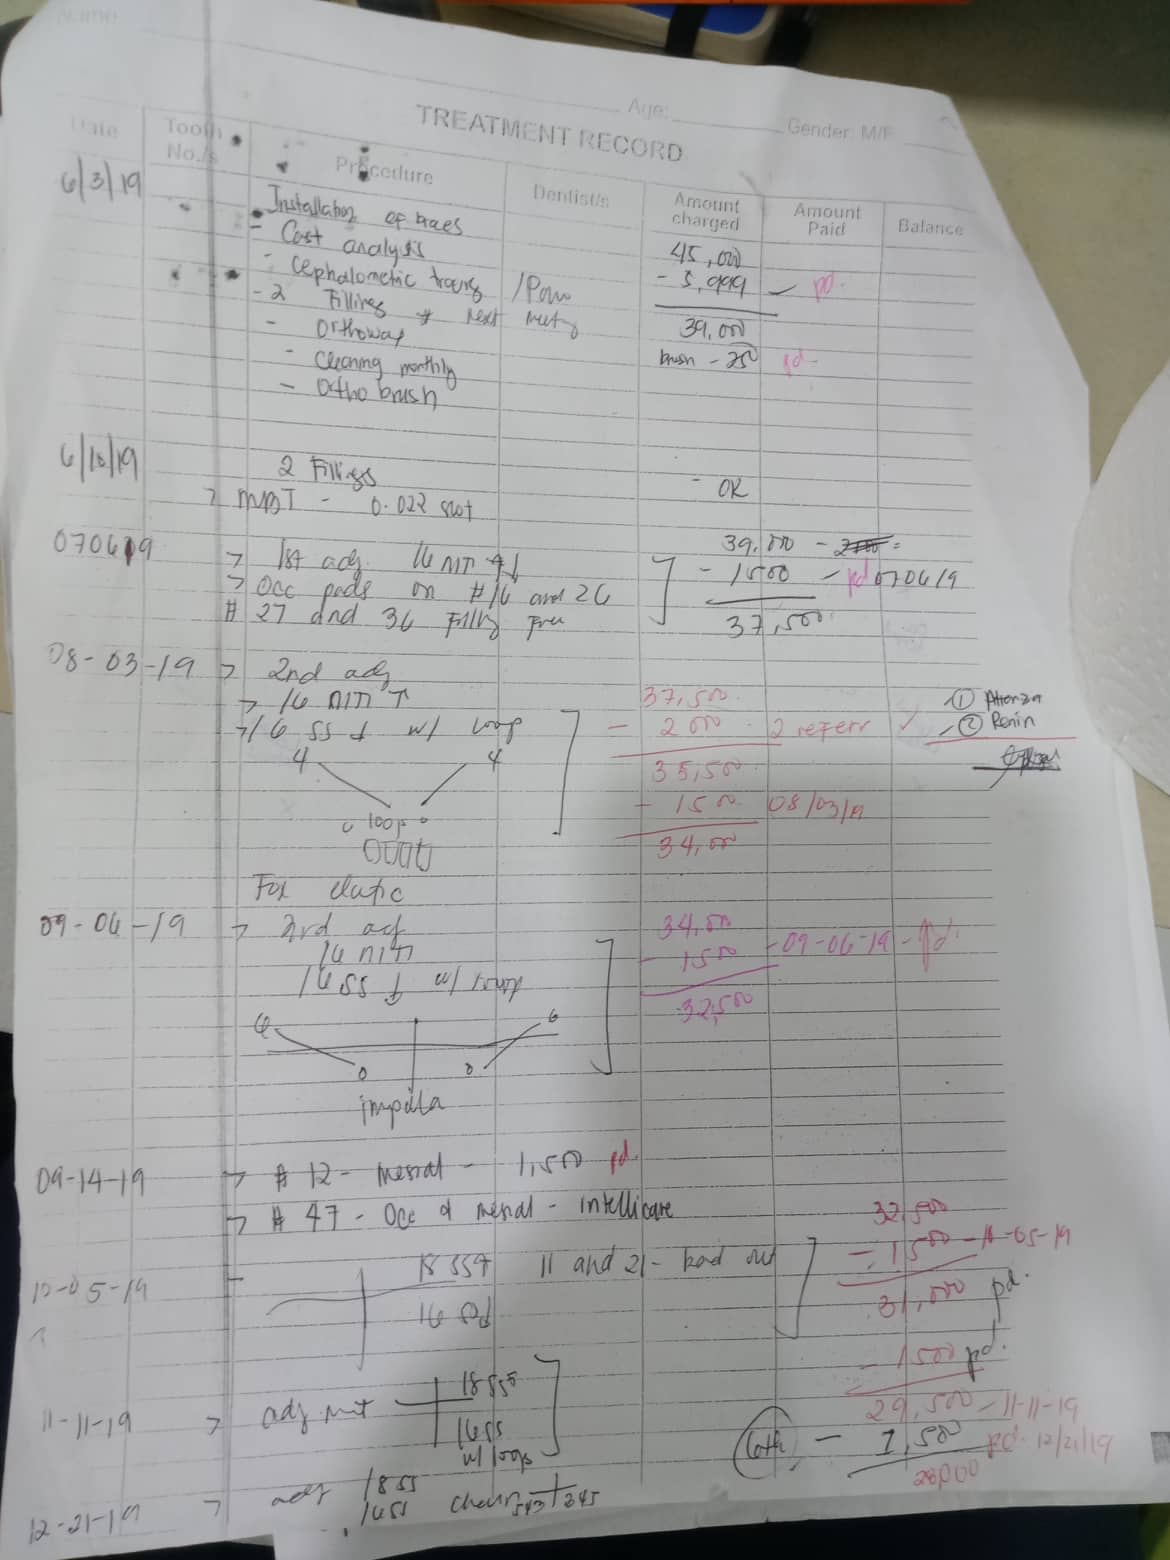 Name
Age:
Gender: M/F
TREATMENT RECORD
Date Tooth No./s Procedure Dentist/s Amount charged Amount Paid Balance
6/3/19 Installation of braces
- Cast analysis 45,000
- Cephalometric - 5,999 - pd.
- 2 Fillings * next 39,000
- Orthowax brush - 250 pd-
- Cleaning monthly
- Ortho brush
6/18/19 2 Fillings - OK
> MBT - 0.022 slot
070619 > 1st adj. 16 NITI 39,000 -
> Occ pads on #16 and 26 - 1500 - pd 070619
# 27 and 36 Filling Free 37,500
08-03-19 > 2nd adj
> 16 NITI ↑ 37,500
> 16 SS ↓ w/ loop - 2000 - 2 referr ② Renin
4 4 35,500
- 1500 08/03/19
loop 34,000
For elastic
09-06-19 > 3rd adj 34,000
16 NITI - 1500 - 09-06-19 - pd.
16 SS ↓ w/ loop 32,500
6 6
09-14-19 > # 12 - mesial - 1,500 pd.
> # 47 - Occ & mesial - intellicare 32,500
10-05-19 11 and 21 - - 1500 -05-19
31,000 pd.
- 1500 pd.
11-11-19 > 18 SS 29,500 - 11-11-19
16 SS - 1,500 pd. 12/21/19
w/ loops 28,000
12-21-19 > adj 18 SS
16 SS 543 345